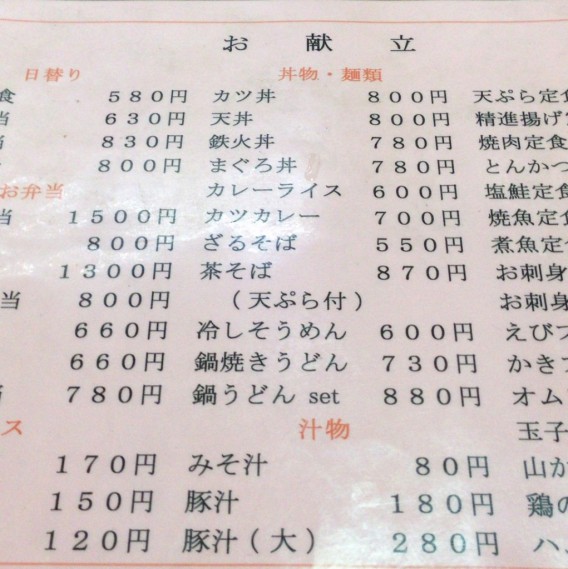 お献立
日替り 丼物・麺類
食 580円 カツ丼 800円 天ぷら定食
当 630円 天丼 800円 精進揚げ
当 830円 鉄火丼 780円 焼肉定食
800円 まぐろ丼 780円 とんかつ
お弁当 カレーライス 600円 塩鮭定食
当 1500円 カツカレー 700円 焼魚定食
800円 ざるそば 550円 煮魚定食
1300円 茶そば 870円 お刺身
当 800円 (天ぷら付) お刺身
660円 冷しそうめん 600円 えび
660円 鍋焼きうどん 730円 かき
780円 鍋うどん set 880円 オム
ス 汁物 玉子
170円 みそ汁 80円 山か
150円 豚汁 180円 鶏の
120円 豚汁(大) 280円 ハム